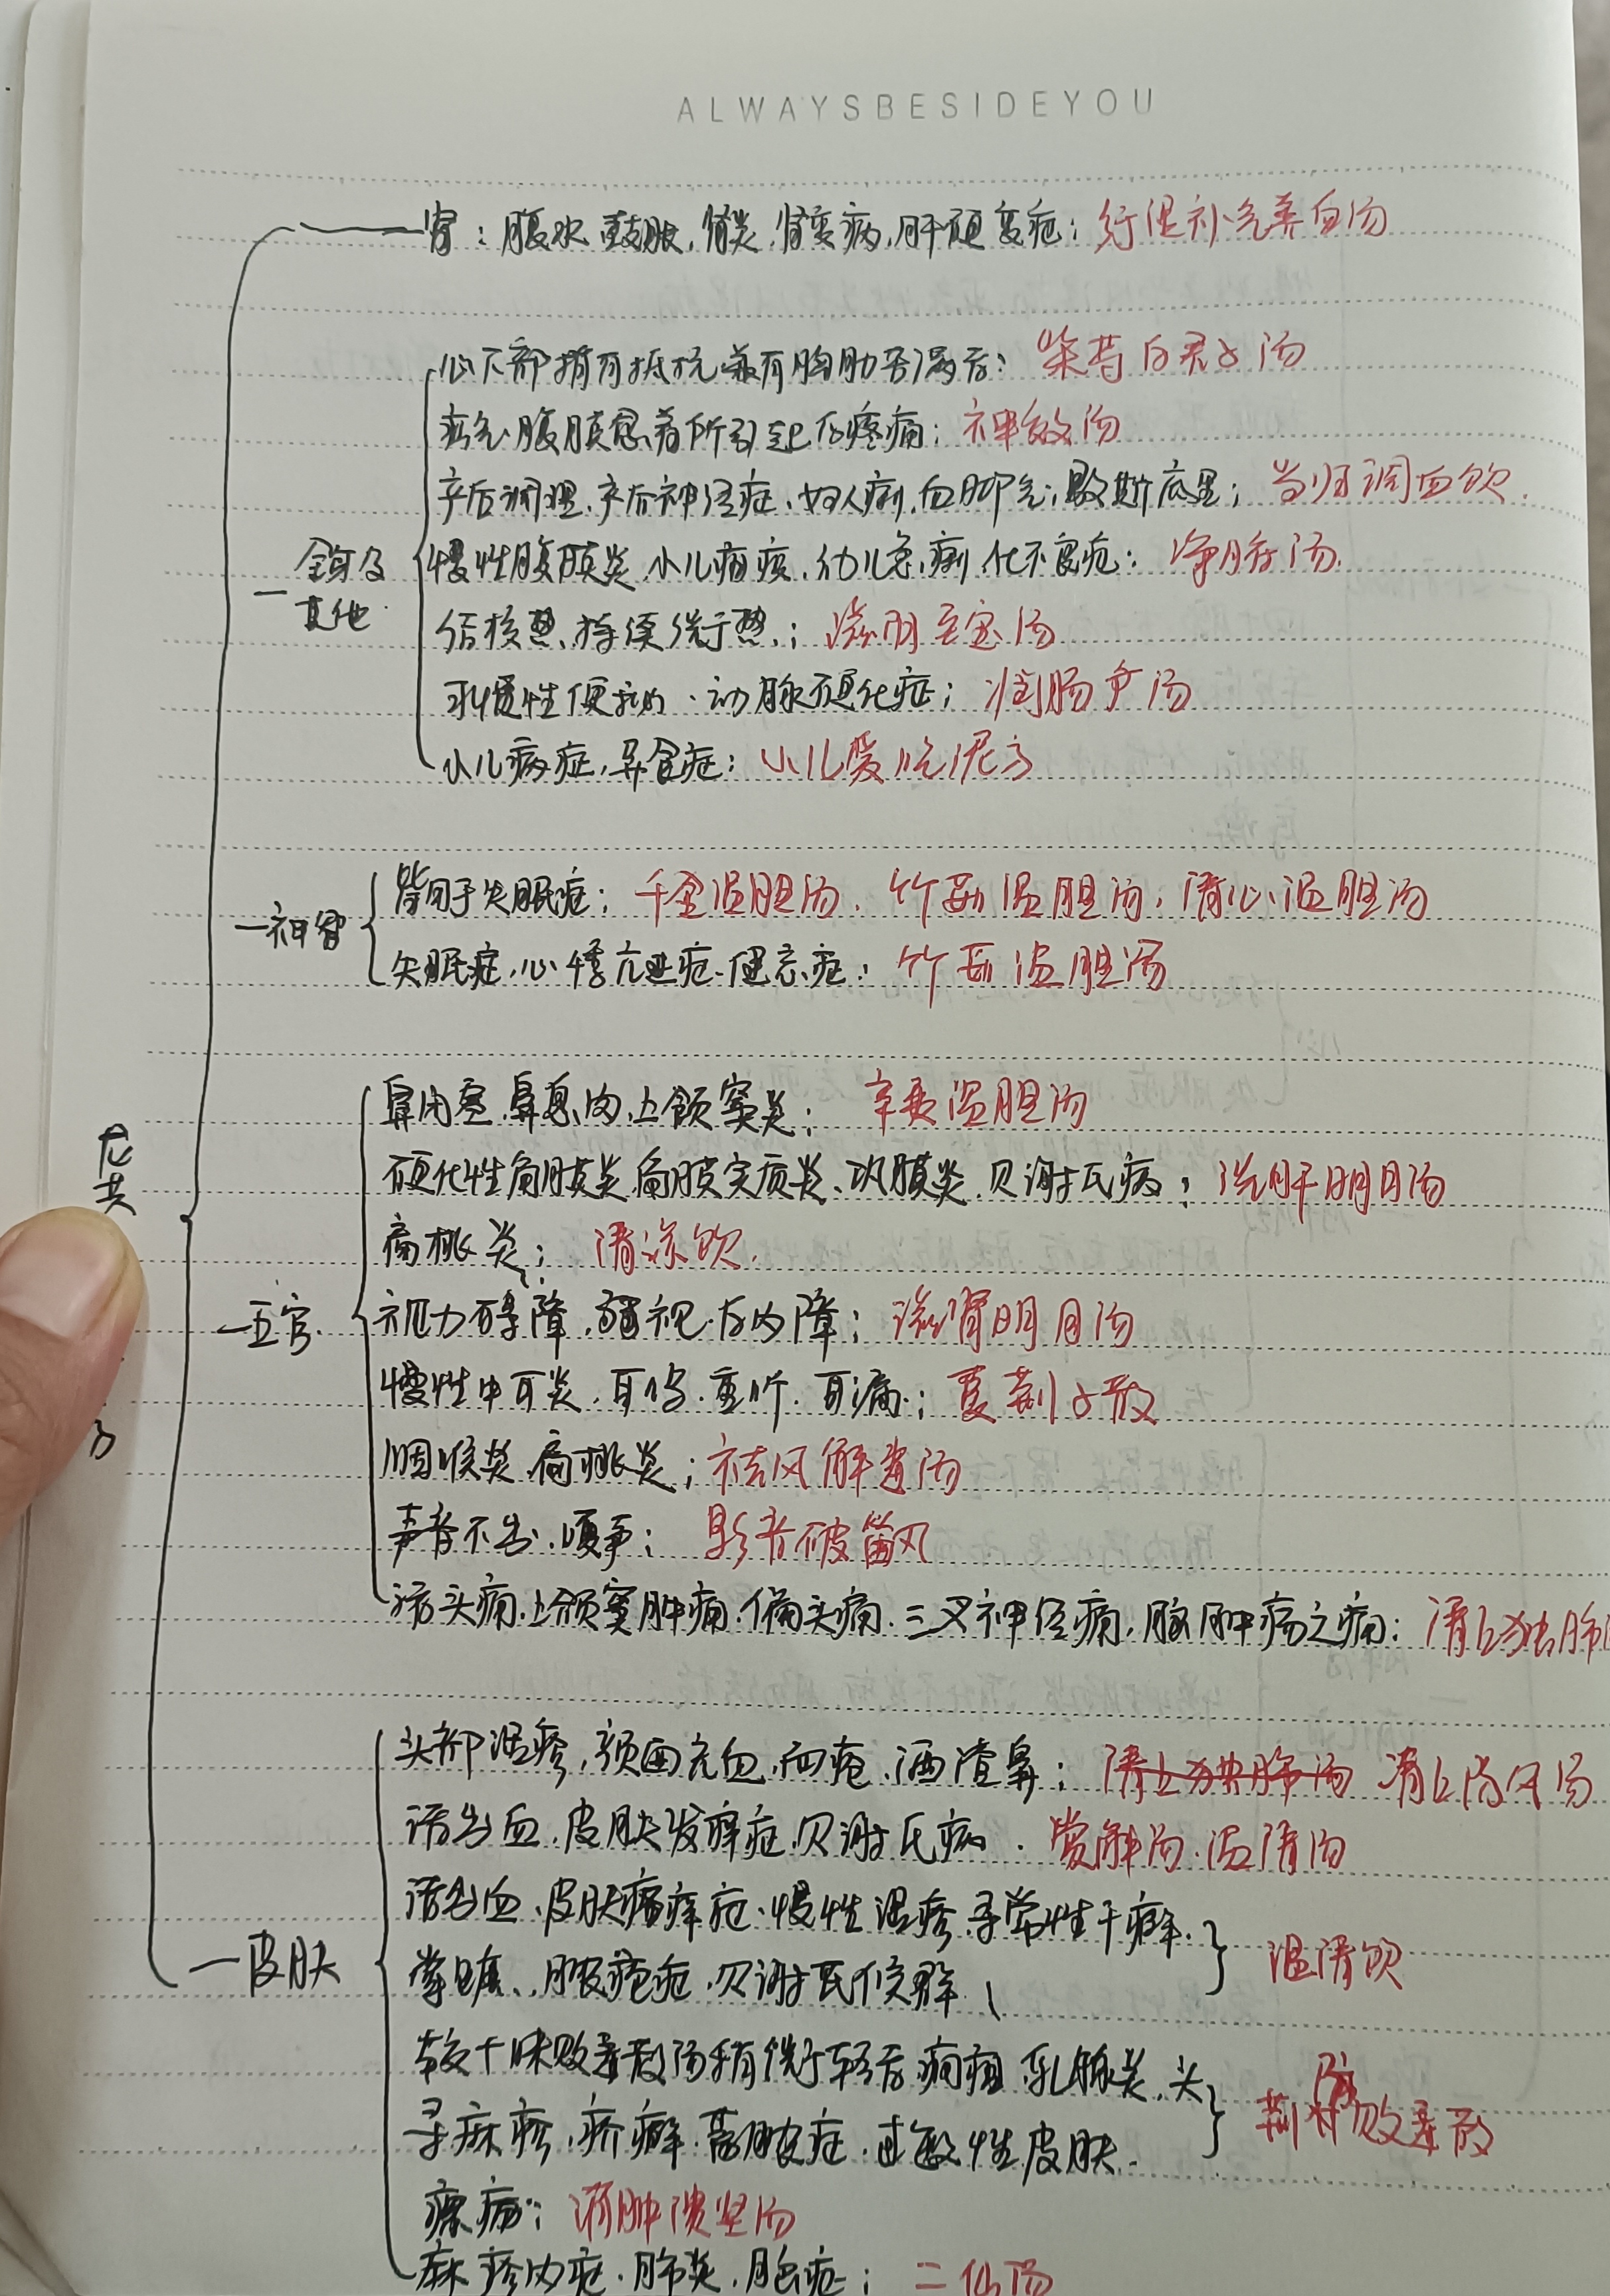 ALWAYSBESIDEYOU
肾：腹水、鼓胀，肾炎，肾变病，肝硬变症：行湿补气养血汤
心下部痞有抵抗兼有胸肋苦满者：柴芍六君子汤
疝气，腹膜愈着所引起的疼痛：神效汤
产后调理，产后神经症，妇人病，血脚气：当归调血饮
慢性腹膜炎，小儿，幼儿，化不良症：净府汤
结核热、持续 热：滋阴至宝汤
慢性便秘，动脉硬化症；润肠 汤
小儿 症，异食症：小儿爱吃泥方
全身及
其他
神智
皆用于失眠症；千金温胆汤，竹茹温胆汤，清心温胆汤
失眠症，心悸亢进症，健忘症：竹茹温胆汤
鼻闭塞，鼻息肉，上颌窦炎；辛夷温胆汤
硬化性角膜炎，角膜实质炎、巩膜炎，贝谢氏病；洗肝明目汤
扁桃炎；清凉饮
五官
视力障碍，弱视，白内障；滋肾明目汤
慢性中耳炎，耳伤，重听，耳漏；蔓荆子散
咽喉炎，扁桃炎；祛风解毒汤
声音不出，嗄声；响声破笛丸
诸头痛，上颌窦肿痛，偏头痛，三叉神经痛，脑肿疡之痛；清上
头部湿疹，颜面充血，面疱，酒渣鼻；清上防风汤
诸出血，皮肤发痒症，贝谢氏病，解汤，温清汤
诸出血，皮肤瘙痒症，慢性湿疹，寻常性干癣
掌 ，疮症，贝谢氏候群
温清饮
皮肤
较十味败毒散汤稍 轻者，乳腺炎，头
荨麻疹，疥癣，过敏性皮肤
荆防败毒散
瘰疬；消肿溃坚汤
麻疹内症，肺炎；二仙汤